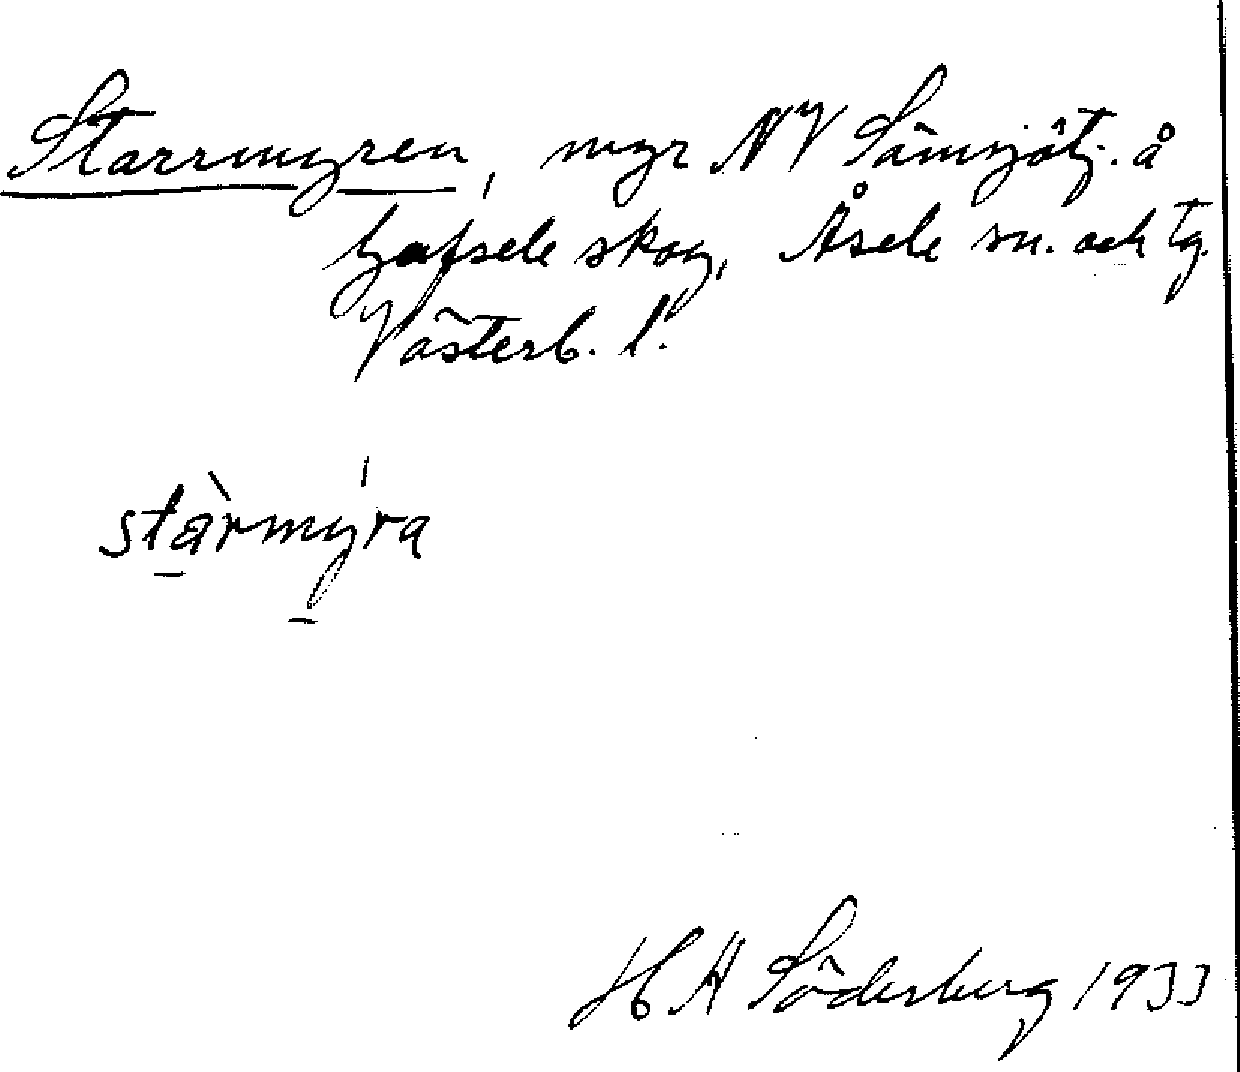 Starrmyren, myr NV Sämsjötj. å
Gafsele skog, Åsele sn. och tg.
Västerb. l.
stàrmýra
H A Söderberg 1933